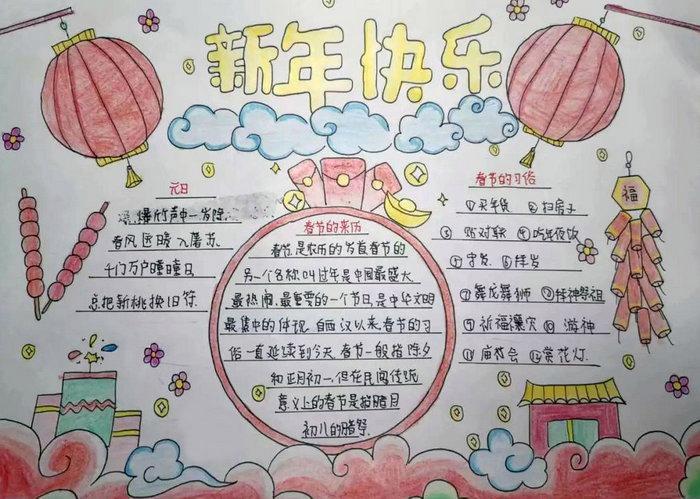 新年快乐
元日
爆竹声中一岁除.
春风送暖入屠苏.
千门万户曈曈日.
总把新桃换旧符.
春节的来历
春节是农历的岁首春节的
另一个名称叫过年是中国最盛大
最热闹.最重要的一个节日,是中华文明
最集中的体现.自西汉以来春节的习
俗一直延续到今天.春节一般指除夕
和正月初一,但在民间传统
意义上的春节是指腊月
初八的腊祭.
春节的习俗
①买年货 ②扫房子
③贴对联 ④吃年夜饭
⑤守岁 ⑥拜岁
⑦舞龙舞狮 ⑧拜神祭祖
⑨祈福禳灾 ⑩游神
⑪庙会 ⑫赏花灯.
福